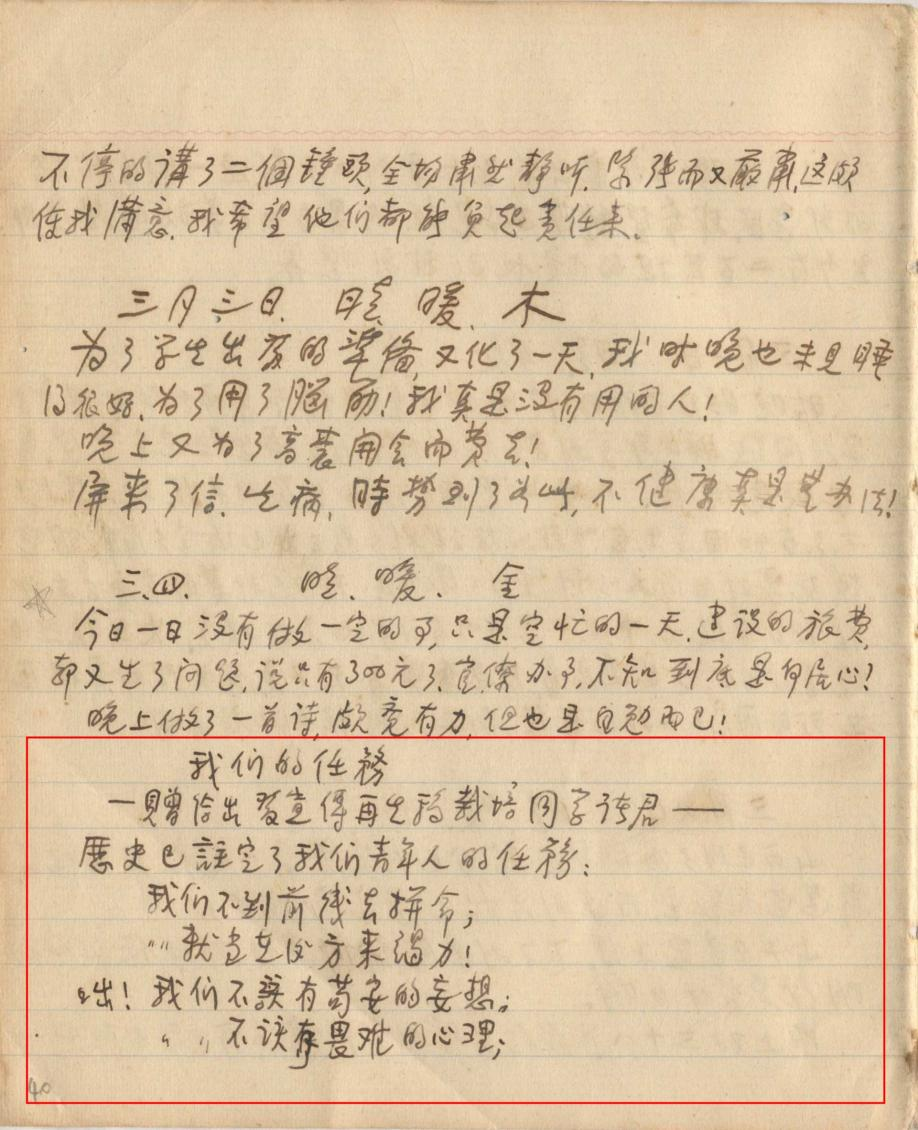 不停的講了二個鐘頭,全場肅然静听.緊張而又嚴肅,这頗
使我满意.我希望他们都能負起責任来。
三月三日. 晴 暖. 木
为了学生出發的準偹,又化了一天,我昨晚也未見睡
得很好,为了用了腦筋!我真是没有用的人!
晚上又为了音裝開会而費去!
屏来了信.生病,時勢到了为此,不健康真是無办法!
三.四. 晴.暖. 金
今日一日没有做一定的事,只是空忙的一天.建设的旅費,
却又生了问题,说只有300元了.官僚办事,不知到底是何居心?
晚上做了一首诗,頗竟有力,但也是自勉而已!
我们的任務
—贈给出發宣傳再生稻栽培同学诸君——
歷史已註定了我们青年人的任務:
我们不到前线去拼命;
〃〃就当在後方来竭力!
咄!我们不該有苟安的妄想;
〃 〃不该有畏难的心理;
40